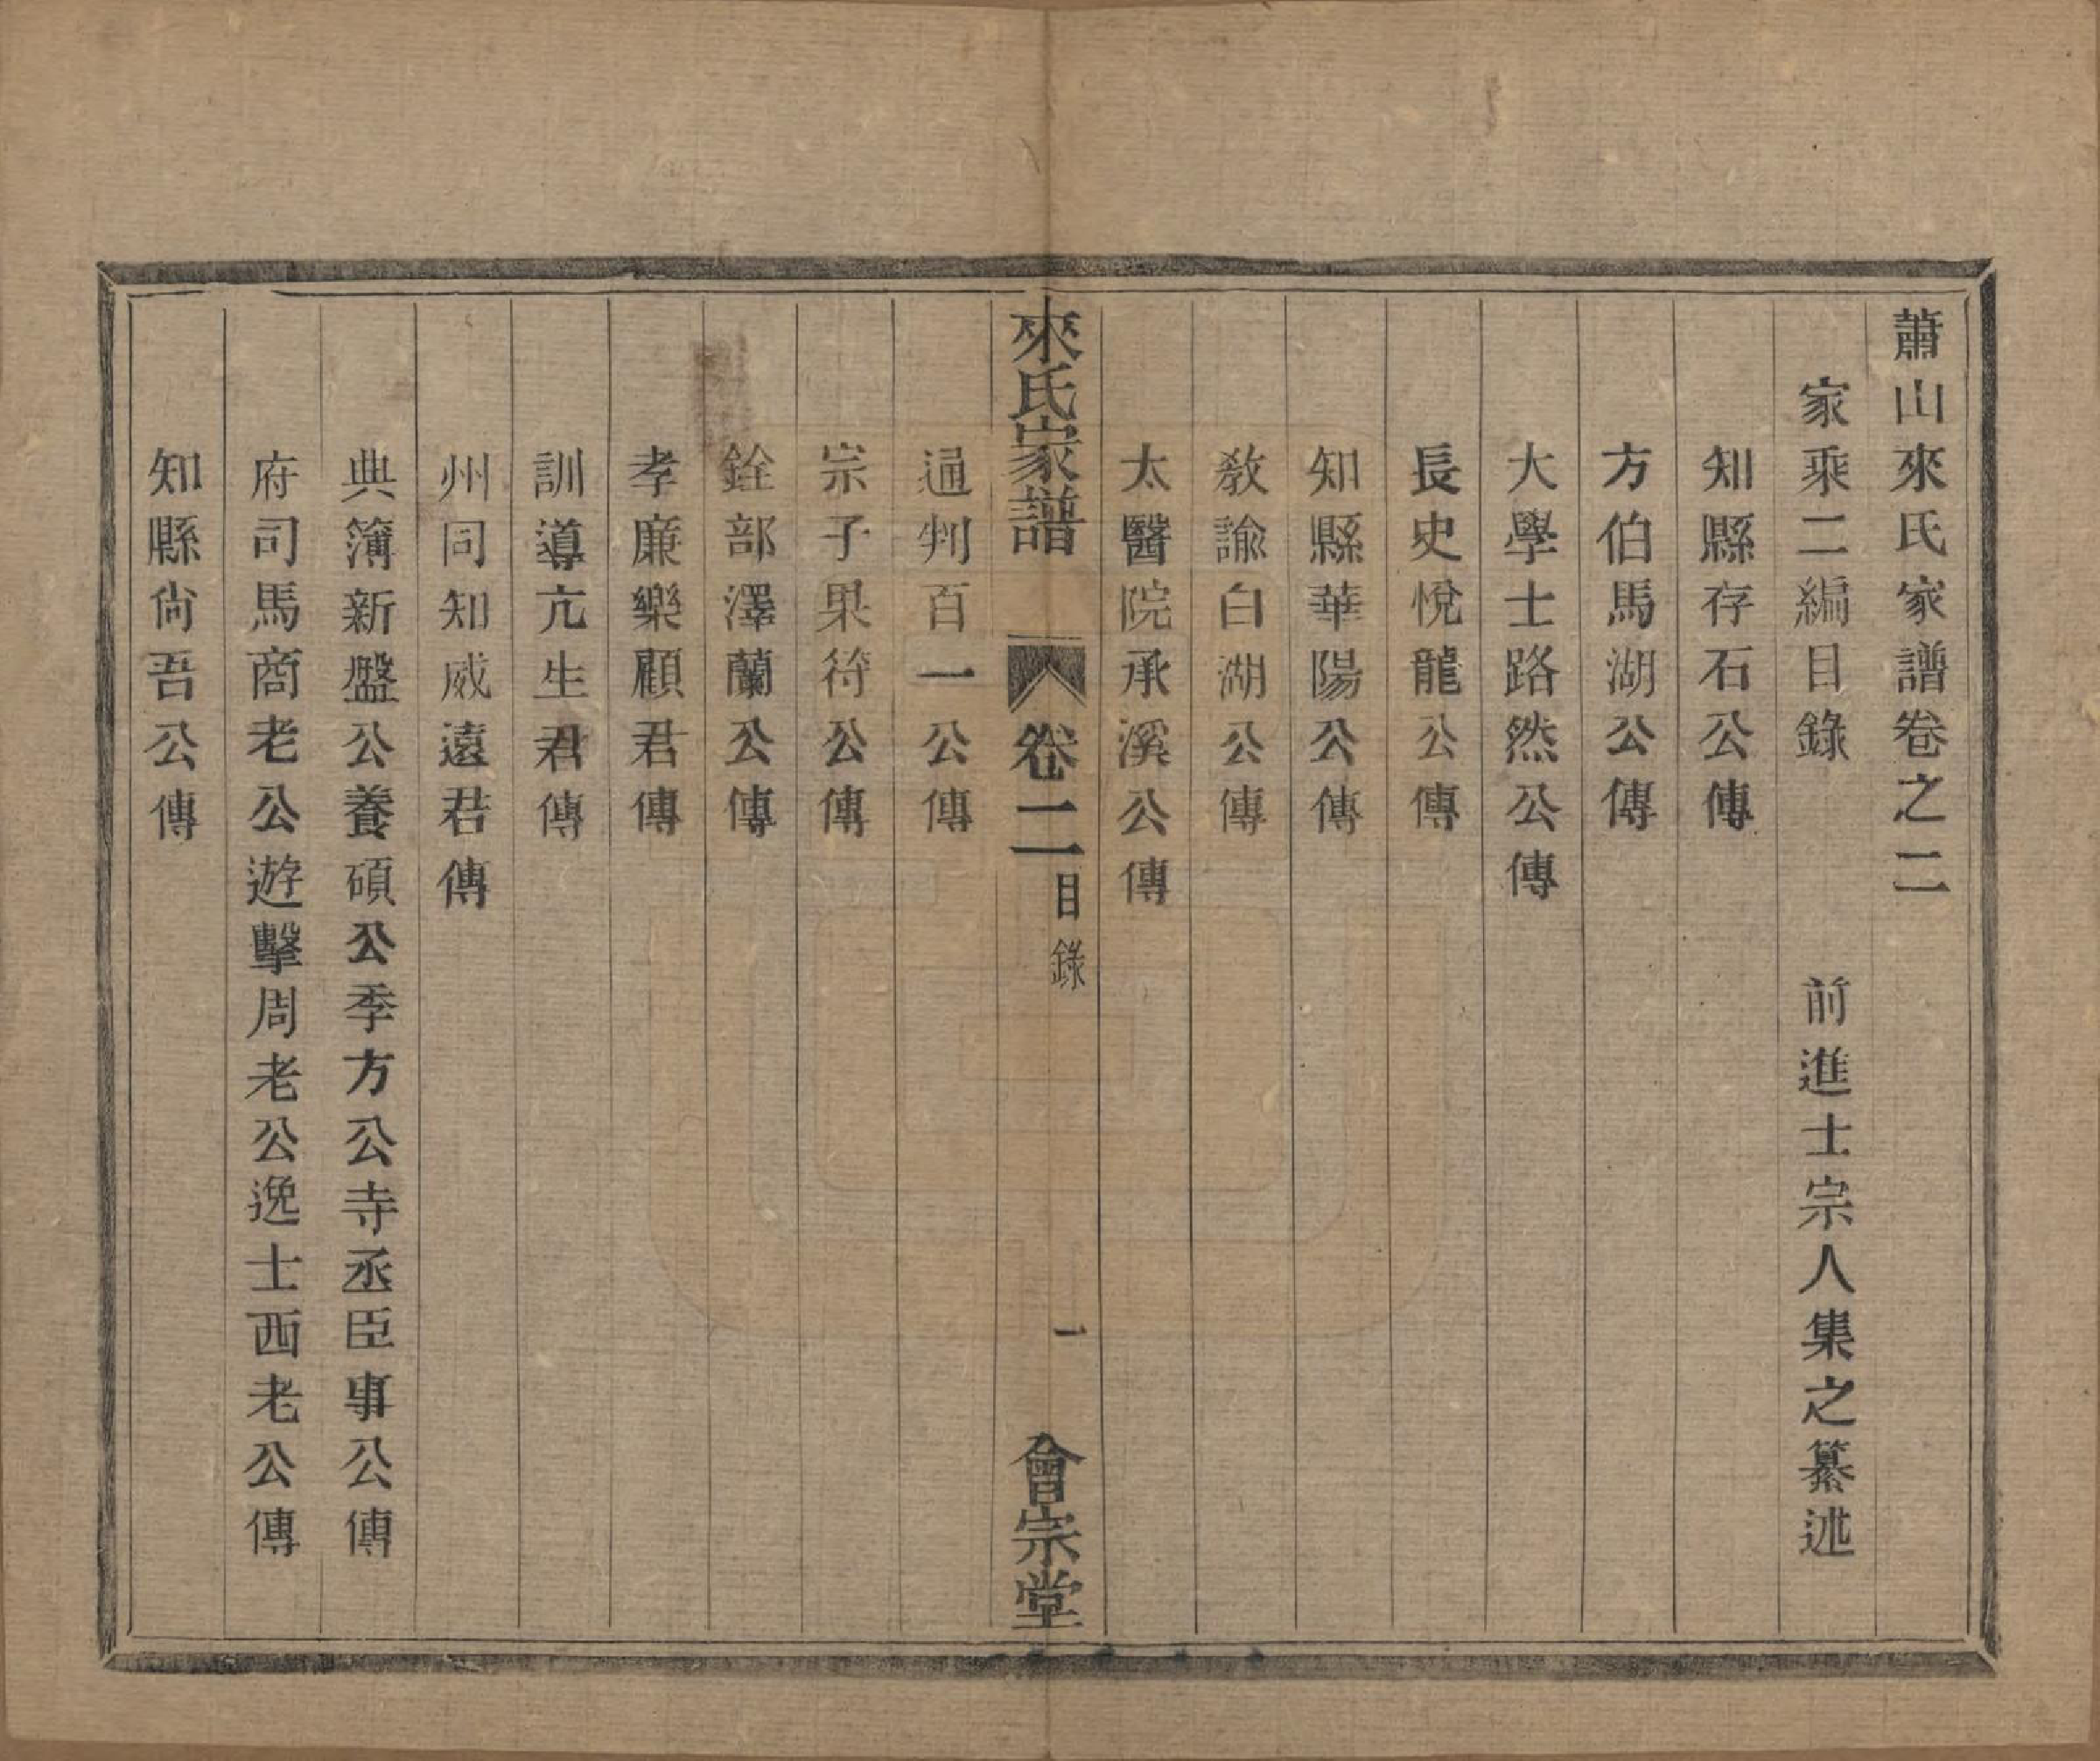 蕭山來氏家譜卷之二
家乘二編目錄　前進士宗人集之纂述
知縣存石公傳
方伯馬湖公傳
大學士路然公傳
長史悅龍公傳
知縣華陽公傳
敎諭白湖公傳
太醫院承溪公傳
來氏家譜　卷二　目錄　一　會宗堂
通判百一公傳
宗子果符公傳
銓部澤蘭公傳
孝廉樂顧君傳
訓導亢生君傳
州同知威遠君傳
典簿新盤公養碩公季方公寺丞臣事公傳
府司馬商老公遊擊周老公逸士西老公傳
知縣尙吾公傳